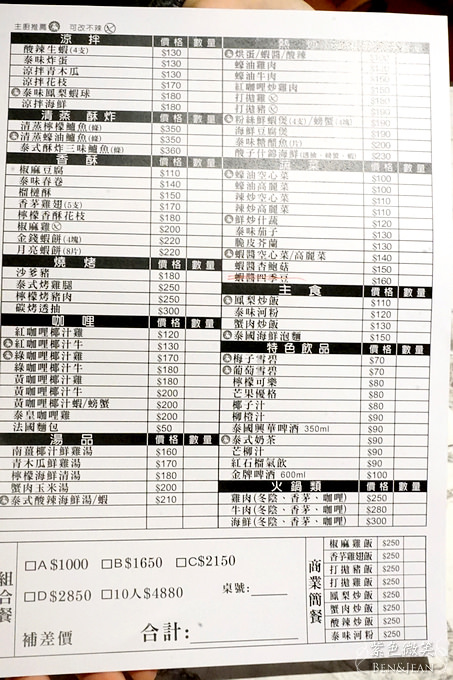 主廚推薦 可改不辣
涼拌 價格 數量
酸辣生蝦(4支) $130
泰味炸蛋 $130
涼拌青木瓜 $130
涼拌花枝 $170
泰味鳳梨蝦球 $180
涼拌海鮮 $180
清蒸 酥炸 價格 數量
清蒸檸檬鱸魚(條) $350
清蒸蠔油鱸魚(條) $350
泰式酥炸三味鱸魚(條) $360
香酥 價格 數量
椒麻豆腐 $110
泰味春卷 $140
榴槤酥 $150
香茅雞翅(5支) $170
檸檬香酥花枝 $180
椒麻雞 $200
金錢蝦餅(4塊) $220
月亮蝦餅(8片) $220
燒烤 價格 數量
沙爹豬 $180
泰式烤雞腿 $250
檸檬烤豬肉 $250
碳烤透抽 $300
咖哩 價格 數量
紅咖哩椰汁雞 $120
紅咖哩椰汁牛 $130
綠咖哩椰汁雞 $170
綠咖哩椰汁牛 $180
黃咖哩椰汁雞
黃咖哩椰汁牛 $200
黃咖哩椰汁蝦/螃蟹 $200
泰皇咖哩雞 $200
法國麵包 $50
湯品 價格 數量
南薑椰汁鮮雞湯 $160
青木瓜鮮雞湯 $170
檸檬海鮮清湯 $180
蟹肉玉米湯 $200
泰式酸辣海鮮湯/蝦 $210
烘蛋/蝦醬/酸辣
蠔油雞肉
蠔油牛肉
紅咖哩炒雞肉
打拋雞
打拋豬
粉絲鮮蝦煲(4支)/螃蟹(1塊)
海鮮豆腐煲 $190
泰味醋醋魚(片) $200
$230
蠔油空心菜 $100
蠔油高麗菜 $100
辣炒空心菜 $100
辣炒高麗菜 $100
鮮炒什蔬 $110
泰味茄子 $130
脆皮芥蘭 $130
蝦醬空心菜/高麗菜 $140
蝦醬杏鮑菇 $150
蝦醬四季豆 $160
主食 價格 數量
鳳梨炒飯 $110
泰味河粉 $120
蟹肉炒飯 $130
泰國海鮮泡麵 $150
特色飲品 價格 數量
梅子雪碧 $70
葡萄雪碧 $70
檸檬可樂 $80
芒果優格 $80
椰子汁 $80
柳橙汁 $90
泰國興華啤酒 350ml $90
泰式奶茶 $90
芒柳汁 $90
紅石榴氣飲 $90
金牌啤酒 600ml $100
火鍋類 價格 數量
雞肉(冬陰、香茅、咖哩) $250
牛肉(冬陰、香茅、咖哩) $280
海鮮(冬陰、香茅、咖哩) $300
組合餐
□A $1000 □B $1650 □C $2150
□D $2850 □10人 $4880 桌號:
補差價 合計:
商業簡餐
椒麻雞飯 $250
香茅雞翅飯 $250
打拋豬飯 $250
打拋雞飯 $250
鳳梨炒飯 $250
蟹肉炒飯 $250
酸辣炒飯 $250
泰味河粉 $250
紫色微笑
BEN&JEAN